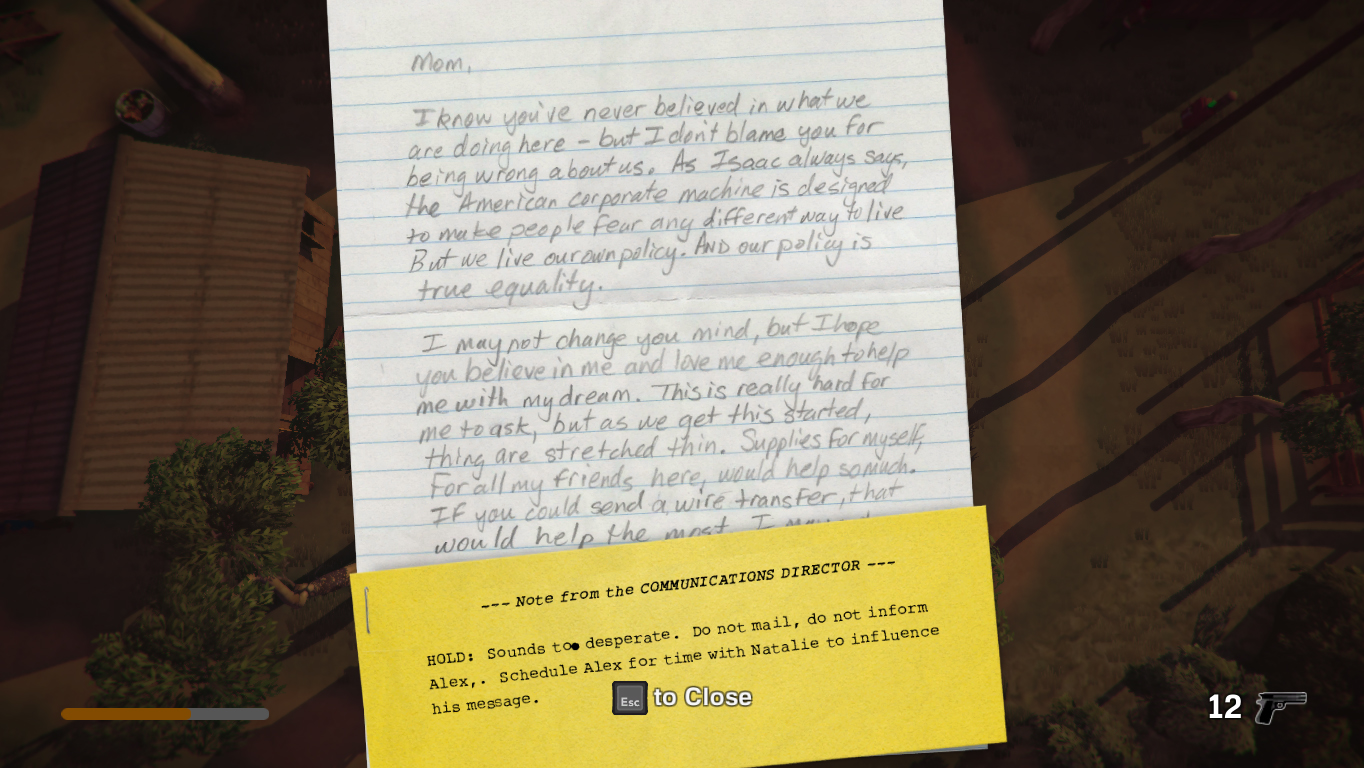 Mom,
I know you've never believed in what we
are doing here - but I don't blame you for
being wrong about us. As Isaac always says,
the American corporate machine is designed
to make people fear any different way to live
But we live our own policy. AND our policy is
true equality.
I may not change you mind, but I hope
you believe in me and love me enough to help
me with my dream. This is really hard for
me to ask, but as we get this started,
thing are stretched thin. Supplies for myself,
For all my friends here, would help so much.
IF you could send a wire transfer, that
would help the most. I
--- Note from the COMMUNICATIONS DIRECTOR ---
HOLD: Sounds too desperate. Do not mail, do not inform
Alex,. Schedule Alex for time with Natalie to influence
his message.
Esc to Close
12